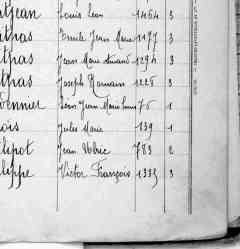 tjean Louis Léon 1464 3
thas Emile Jean Marie 1177 3
thas Jean Marie 1294 3
thas Joseph Romain 1228 3
bennier Léon Jean Marie 76 1
ois Jules Marie 839 1
lipot Jean Ulric 783 2
lippe Victor François 1335 3